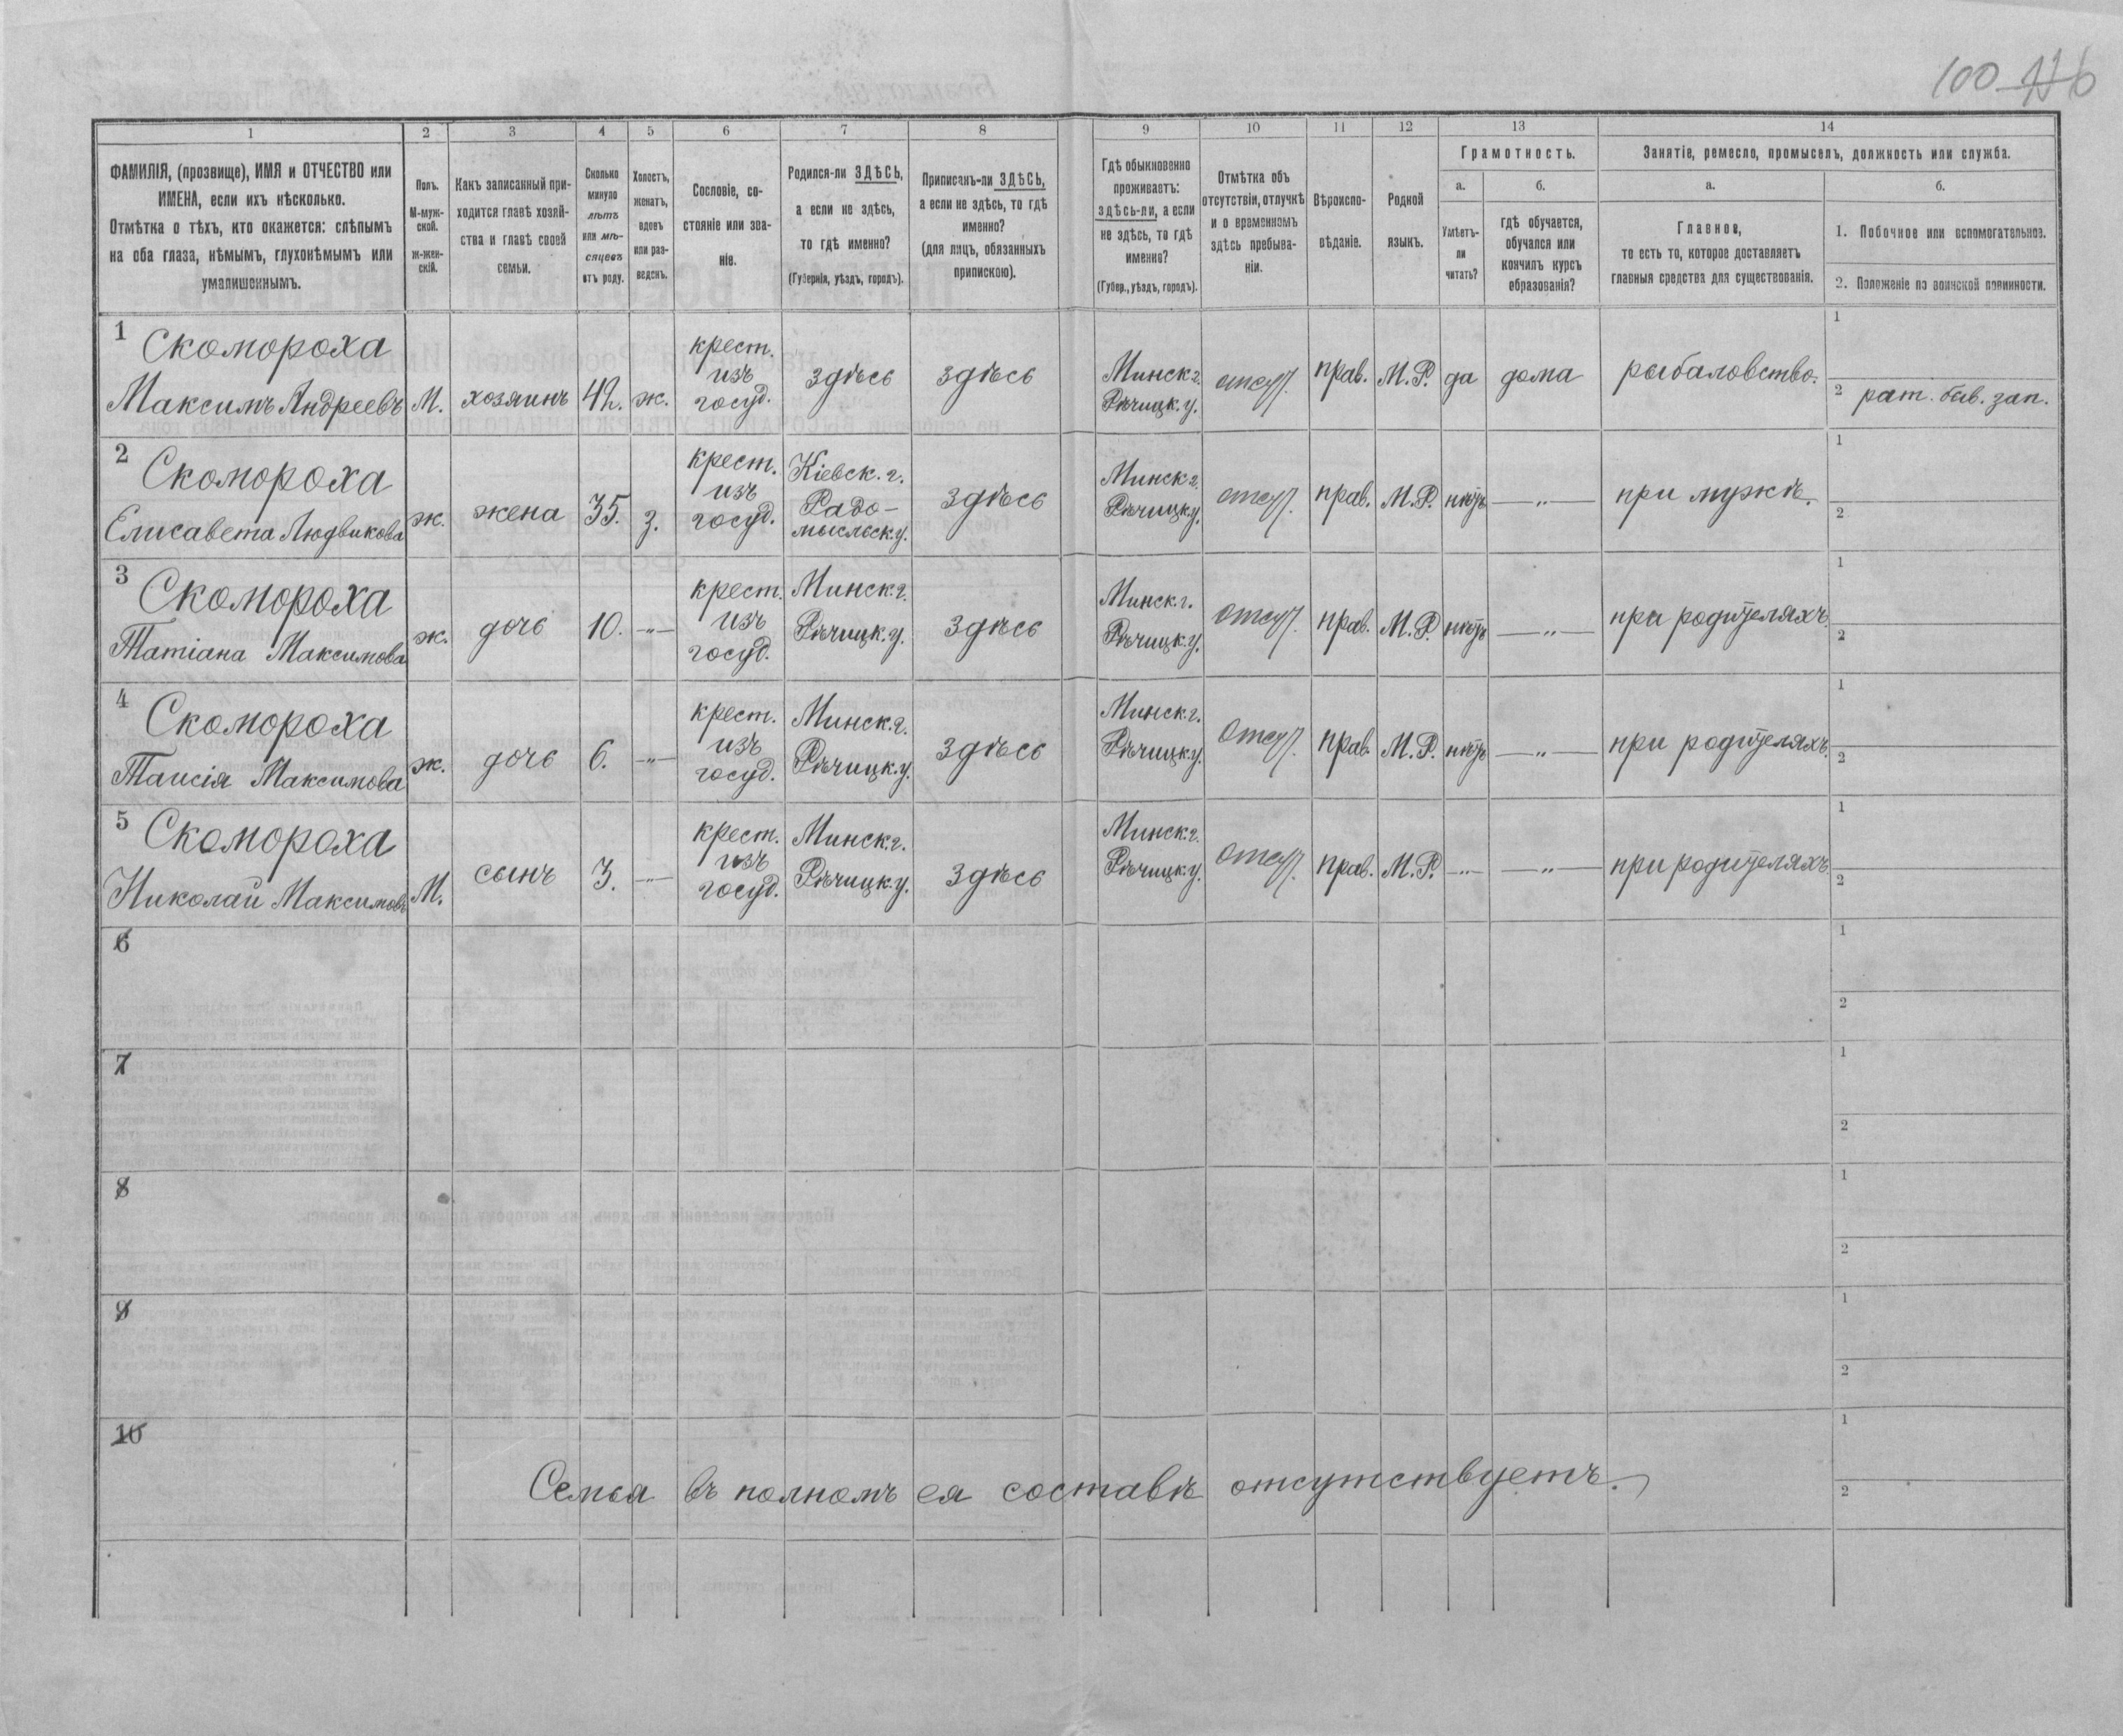 100 116
1 2 3 4 5 6 7 8 9 10 11 12 13 14
ФАМИЛІЯ, (прозвище), ИМЯ и ОТЧЕСТВО или
ИМЕНА, если ихъ нѣсколько.
Отмѣтка о тѣхъ, кто окажется: слѣпымъ
на оба глаза, нѣмымъ, глухонѣмымъ или
умалишеннымъ.
Полъ.
М-муж-
ской.
ж-жен-
скій.
Какъ записанный при-
ходится главѣ хозяй-
ства и главѣ своей
семьи.
Сколько
минуло
лѣтъ
или мѣ-
сяцевъ
отъ роду.
Холостъ,
женатъ,
вдовъ
или раз-
веденъ.
Сословіе, со-
стояніе или зва-
ніе.
Родился-ли ЗДѢСЬ,
а если не здѣсь,
то гдѣ именно?
(Губернія, уѣздъ, городъ).
Приписанъ-ли ЗДѢСЬ,
а если не здѣсь, то гдѣ
именно?
(для лицъ, обязанныхъ
припискою).
Гдѣ обыкновенно
проживаетъ:
здѣсь-ли, а если
не здѣсь, то гдѣ
именно?
(Губер., уѣздъ, городъ).
Отмѣтка объ
отсутствіи, отлучкѣ
и о временномъ
здѣсь пребыва-
ніи.
Вѣроиспо-
вѣданіе.
Родной
языкъ.
Грамотность.
а.
Умѣетъ-
ли
читать?
б.
гдѣ обучается,
обучался или
кончилъ курсъ
образованія?
Занятіе, ремесло, промыселъ, должность или служба.
а.
Главное,
то есть то, которое доставляетъ
главныя средства для существованія.
б.
1. Побочное или вспомогательное.
2. Положеніе по воинской повинности.
1 Скомороха
Максимъ Андреевъ
М.
хозяинъ
42.
ж.
крест.
изъ
госуд.
здѣсь
здѣсь
Минск. г.
Рѣчицк. у.
отсут.
прав.
М.Р.
да
дома
рыбаловство.
1
2 рат. быв. зап.
2 Скомороха
Елисавета Людвикова
ж.
жена
35.
з.
крест.
изъ
госуд.
Кіевск. г.
Радо-
мысльск. у.
здѣсь
Минск. г.
Рѣчицк. у.
отсут.
прав.
М.Р.
нѣтъ
— „ —
при мужѣ.
1
2
3 Скомороха
Татіана Максимова
ж.
дочь
10.
— „ —
крест.
изъ
госуд.
Минск. г.
Рѣчицк. у.
здѣсь
Минск. г.
Рѣчицк. у.
отсут.
прав.
М.Р.
нѣтъ
— „ —
при родителяхъ.
1
2
4 Скомороха
Таисія Максимова
ж.
дочь
6.
— „ —
крест.
изъ
госуд.
Минск. г.
Рѣчицк. у.
здѣсь
Минск. г.
Рѣчицк. у.
Отсут.
прав.
М.Р.
нѣтъ
— „ —
при родителяхъ.
1
2
5 Скомороха
Николай Максимовъ
М.
сынъ
3.
— „ —
крест.
изъ
госуд.
Минск. г.
Рѣчицк. у.
здѣсь
Минск. г.
Рѣчицк. у.
Отсут.
прав.
М.Р.
— „ —
— „ —
при родителяхъ.
1
2
6
1
2
7
1
2
8
1
2
9
1
2
10
1
Семья въ полномъ ея составѣ отсутствуетъ.
2